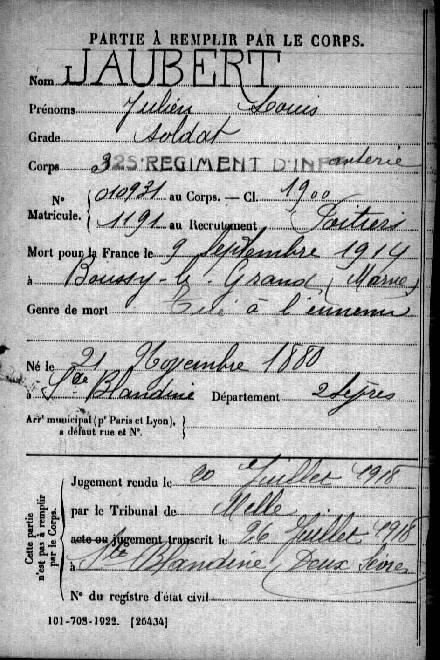 PARTIE À REMPLIR PAR LE CORPS.
Nom JAUBERT
Prénoms Julien Louis
Grade soldat
Corps 325 REGIMENT D'INFanterie
N° Matricule. { 010931 au Corps. — Cl. 1900
1191 au Recrutement Poitiers
Mort pour la France le 9 Septembre 1914
à Boussy-le-Grand (Marne)
Genre de mort Tué à l'ennemi
Né le 21 Novembre 1880
à Ste Blandine Département 2 Sèvres
Arrt municipal (pr Paris et Lyon), à défaut rue et N°. }
Cette partie n'est pas à remplir par le Corps.
Jugement rendu le 20 Juillet 1918
par le Tribunal de Melle
acte ou jugement transcrit le 26 Juillet 1918
à Ste Blandine (Deux Sèvres)
N° du registre d'état civil
101-708-1922. [26434]